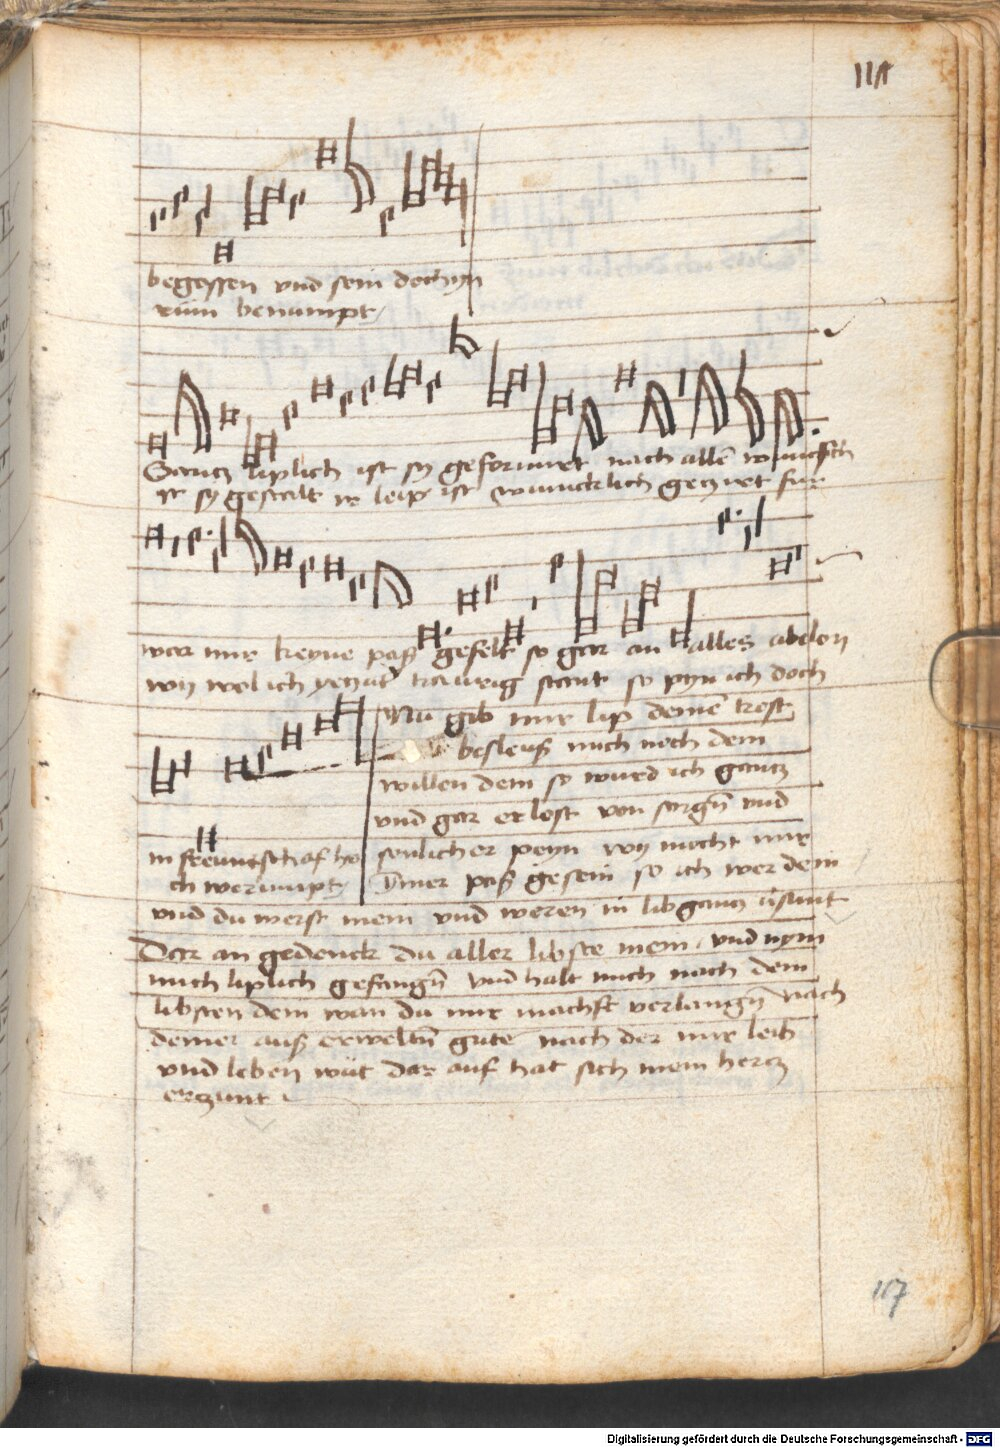 111
begossen vnd sein doch yn
rüm benumpt
Gancz liplich ist sy geformiret nach allē wunsch
ist sy gestalt ir leip ist wuncklich geczirt fur
war mir keyne paß gefelt so gar an alles abelon
wy wol ich yeczūt trawrig stant so pyn ich doch
in freuntschaf ho
ch verumpt
Nu gib mir lip deinē trost
besleuß mich noch dem
willen dein so wurd ich gancz
vnd gar erlost von sorgñ vnd
senlicher peyn wy mocht mir
ymer paß gesein so ich wer dein
vnd du werst mein vnd weren in lib gancz
Dar an gedenck du aller libste mein vnd nym
mich liplich gefangñ vnd halt mich nach dem
libsten dein wan du mir machst verlangñ nach
deiner auß erweltñ gute nach der mir leib
vnd leben wüt dar auf hat sich mein hercz
erczunt
117
Digitalisierung gefördert durch die Deutsche Forschungsgemeinschaft - DFG